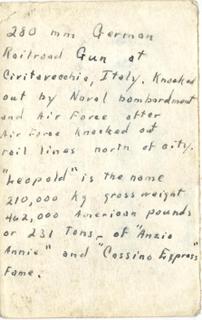 280 mm German
Railroad Gun at
Civitavecchia, Italy. Knocked
out by Naval bombardment
and Air Force after
Air Force knocked out
rail lines north of city.
"Leopold" is the name
210,000 Kg gross weight
462,000 American pounds
or 231 Tons - of "Anzio
Annie" and "Cassino Express"
Fame.